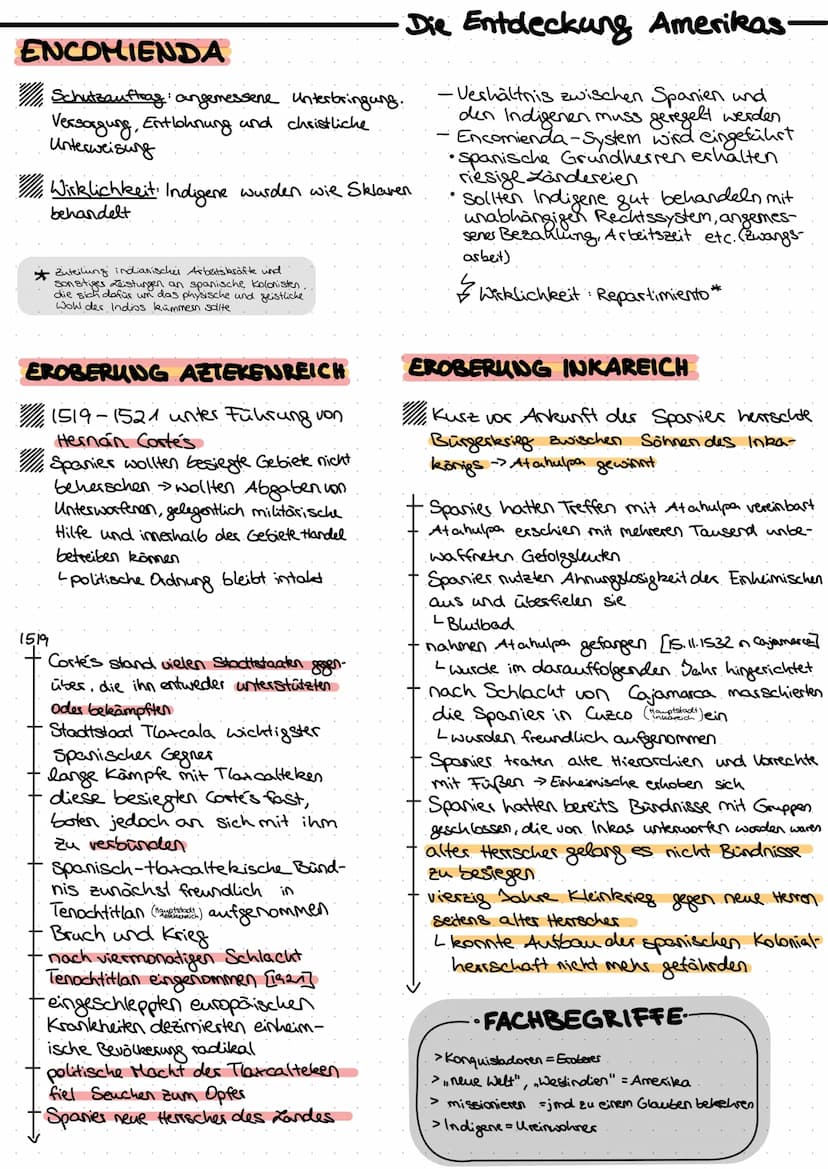 Die Entdeckung Amerikas
ENCOMIENDA
Schutzauftrag: angemessene Unterbringung,
Versorgung, Entlohnung und christliche
Unterweisung
Wirklichkeit: Indigene wurden wie Sklaven
behandelt
* Zuteilung indianischer Arbeitskräfte und
sonstiger Leistungen an spanische Kolonisten,
die sich dafür um das physische und geistliche
Wohl der Indios kümmern sollte
- Verhältnis zwischen Spanien und
den Indigenen muss geregelt werden
- Encomienda-System wird eingeführt
• spanische Grundherren erhalten
riesige Ländereien
• sollten Indigene gut behandeln mit
unabhängigen Rechtssystem, angemes-
sener Bezahlung, Arbeitszeit etc. (Zwangs-
arbeit)
Wirklichkeit: Repartimiento*
EROBERUNG AZTEKENREICH
1519-1521 unter Führung von
Hernán Cortés
Spanier wollten besiegte Gebiete nicht
beherschen → wollten Abgaben von
Unterworfenen, gelegentlich militärische
Hilfe und innerhalb der Gebiete Handel
betreiben können
└ politische Ordnung bleibt intakt
1519
Cortés stand vielen Stadtstaaten gegen-
über, die ihn entweder unterstützten
oder bekämpften
Stadtstaat Tlaxcala wichtigster
Spanischer Gegner
lange Kämpfe mit Tlaxcalteken
diese besiegten Cortés fast,
boten jedoch an sich mit ihm
zu verbünden
Spanisch-tlaxcaltekische Bünd-
nis zunächst freundlich in
Tenochtitlan (Hauptstadt Aztekenreich) aufgenommen
Bruch und Krieg
nach viermonatigen Schlacht
Tenochtitlan eingenommen [1921]
eingeschleppten europäischen
Krankheiten dezimierten einheim-
ische Bevölkerung radikal
politische Macht der Tlaxcalteken
fiel Seuchen zum Opfer
Spanier neue Herrscher des Landes
EROBERUNG INKAREICH
Kurz vor Ankunft der Spanier herrschte
Bürgerkrieg zwischen Söhnen des Inka-
königs -> Atahulpa gewinnt
Spanier hatten Treffen mit Atahulpa vereinbart
Atahulpa erschien mit mehreren Tausend unbe-
waffneten Gefolgsleuten
Spanier nutzten Ahnungslosigkeit der Einheimischen
aus und überfielen sie
└ Blutbad
nahmen Atahulpa gefangen [15.11.1532 in Cajamarca]
└ wurde im darauffolgenden Jahr hingerichtet
nach Schlacht von Cajamarca marschierten
die Spanier in Cuzco (Hauptstadt Inkareich) ein
└ wurden freundlich aufgenommen
Spanier traten alte Hierarchien und Vorrechte
mit Füßen → Einheimische erhoben sich
Spanier hatten bereits Bündnisse mit Gruppen
geschlossen, die von Inkas unterworfen worden waren
alter Herrscher gelang es nicht Bündnisse
zu besiegen
vierzig Jahre Kleinkrieg gegen neue Herren
seitens alter Herrscher
└ konnte Aufbau der spanischen Kolonial-
herrschaft nicht mehr gefährden
• FACHBEGRIFFE •
> Konquistadoren = Eroberer
> „neue Welt", „Westindien" = Amerika
> missionieren = jmd zu einem Glauben bekehren
> Indigene = Ureinwohner